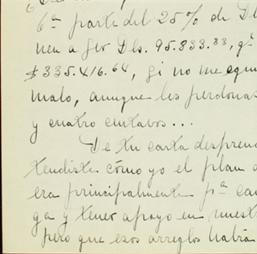 6ª parte del 25% de Dls
nen a ser Dls. 95.833.33, qᵉ
$335.416.64, si no me equi
malo, aunque les perdonas
y cuatro centavos...
De tu carta despren
tendiste cómo yo el plan d
era principalmente pª cau
ga y tener apoyo en nuest
pero que esos arreglos habia